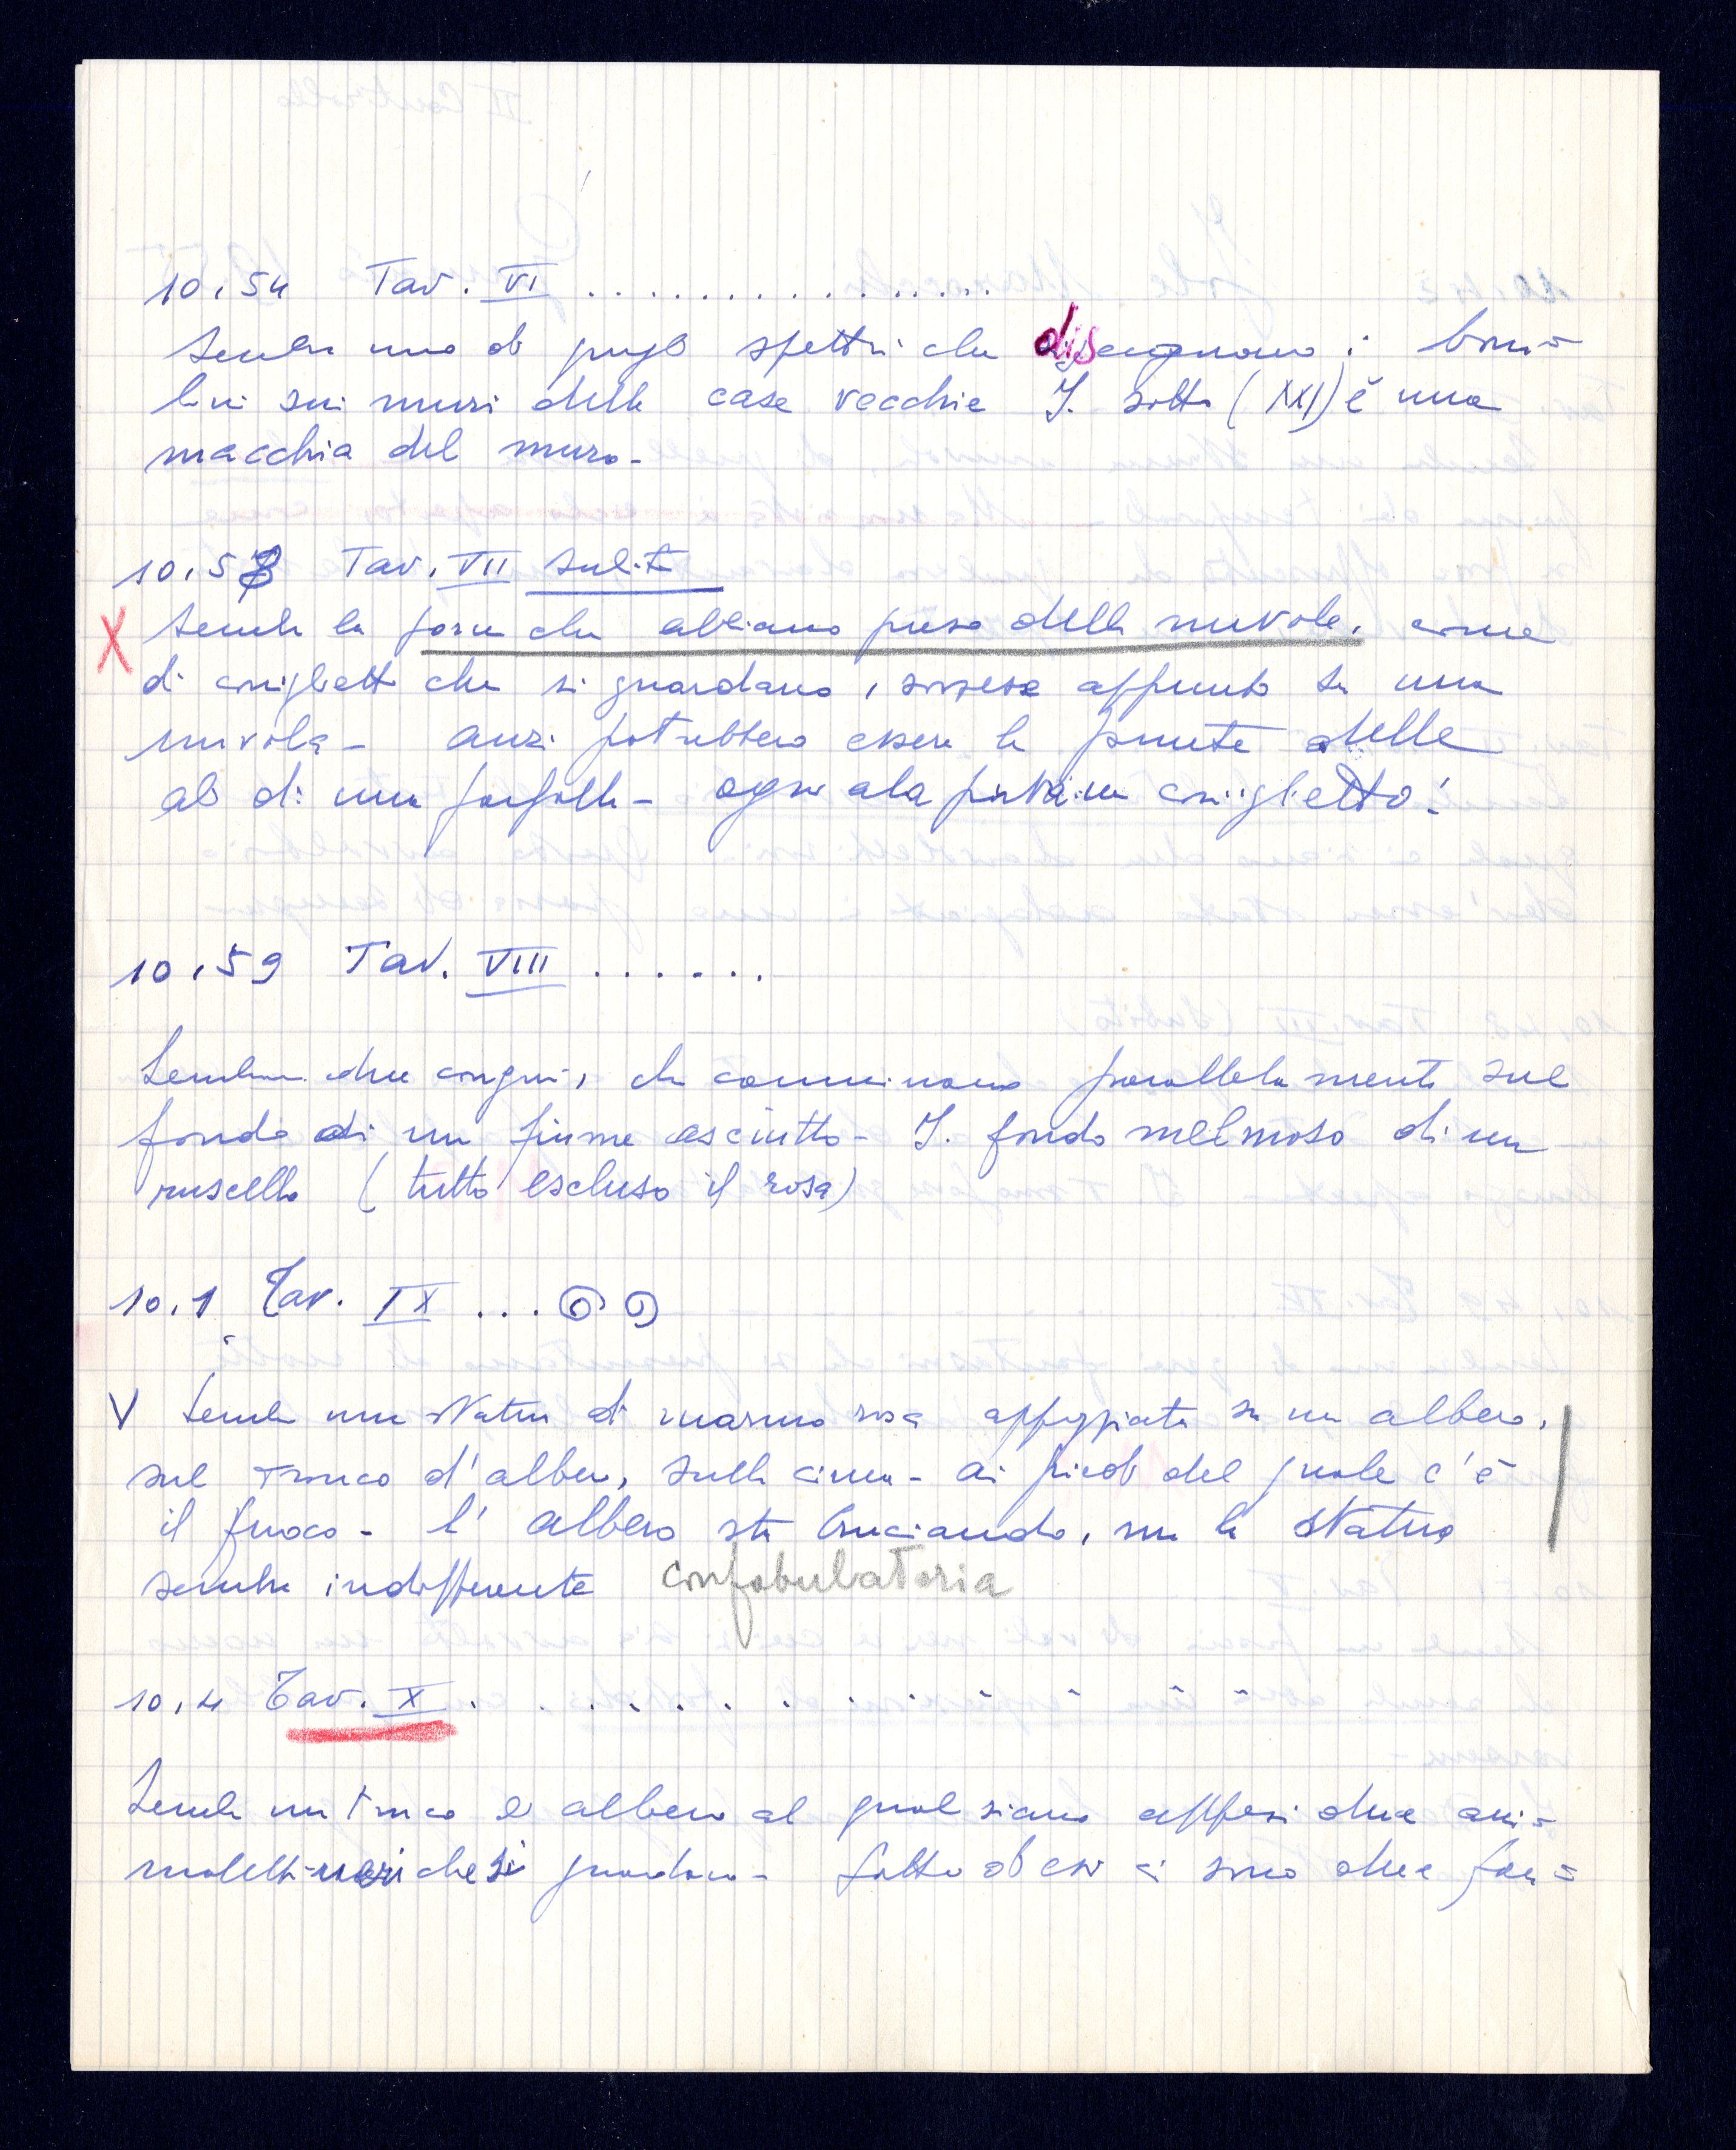 10,54 Tav. VI .................
Sembra uno di quegli spettri che disegnano i bam=
bini sui muri delle case vecchie I. sotto (XXI) è una
macchia del muro-
10,58 Tav. VII subito
X Sembra la forma che abbiano preso delle nuvole, come
di coniglietti che si guardano, sospese appunto su una
nuvola- anzi potrebbero essere le punte delle
ali di una farfalla- ogni ala porta un coniglietto!
10,59 Tav. VIII ......
Sembrano due conguri, che camminano parallelamente sul
fondo di un fiume asciutto- I. fondo melmoso di un
ruscello (tutto escluso il rosa)
10,1 Tav. IX ...
V Sembra una statua di marmo rosa appoggiata su un albero,
sul tronco d'albero, sulla cima- ai piedi del quale c'è
il fuoco- l'albero sta bruciando, ma la statua
sembra indifferente confabulatoria
10,4 Tav. X . . . . . . . . . . . . . .
Sembra un tronco di albero al quale siano appesi due ani=
maletti neri che si guardano- Sotto di essi ci sono due fan=